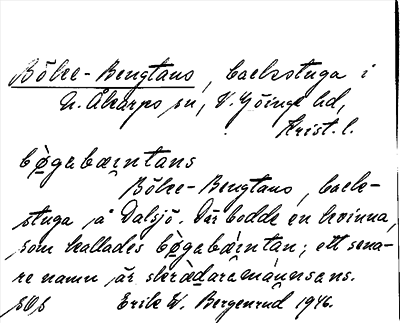 Böke-Bengtans, backstuga i
N. Åkarps sn, V. Göinge hd,
Krist. l.
bø̀gabæntans
Böke-Bengtans, back-
stuga på Dalsjö. Där bodde en kvinna,
som kallades bø̀gabæ̀ntan; ett sena-
re namn är skræ̀darama̍nnsans.
Erik W. Bergenrud 1946.